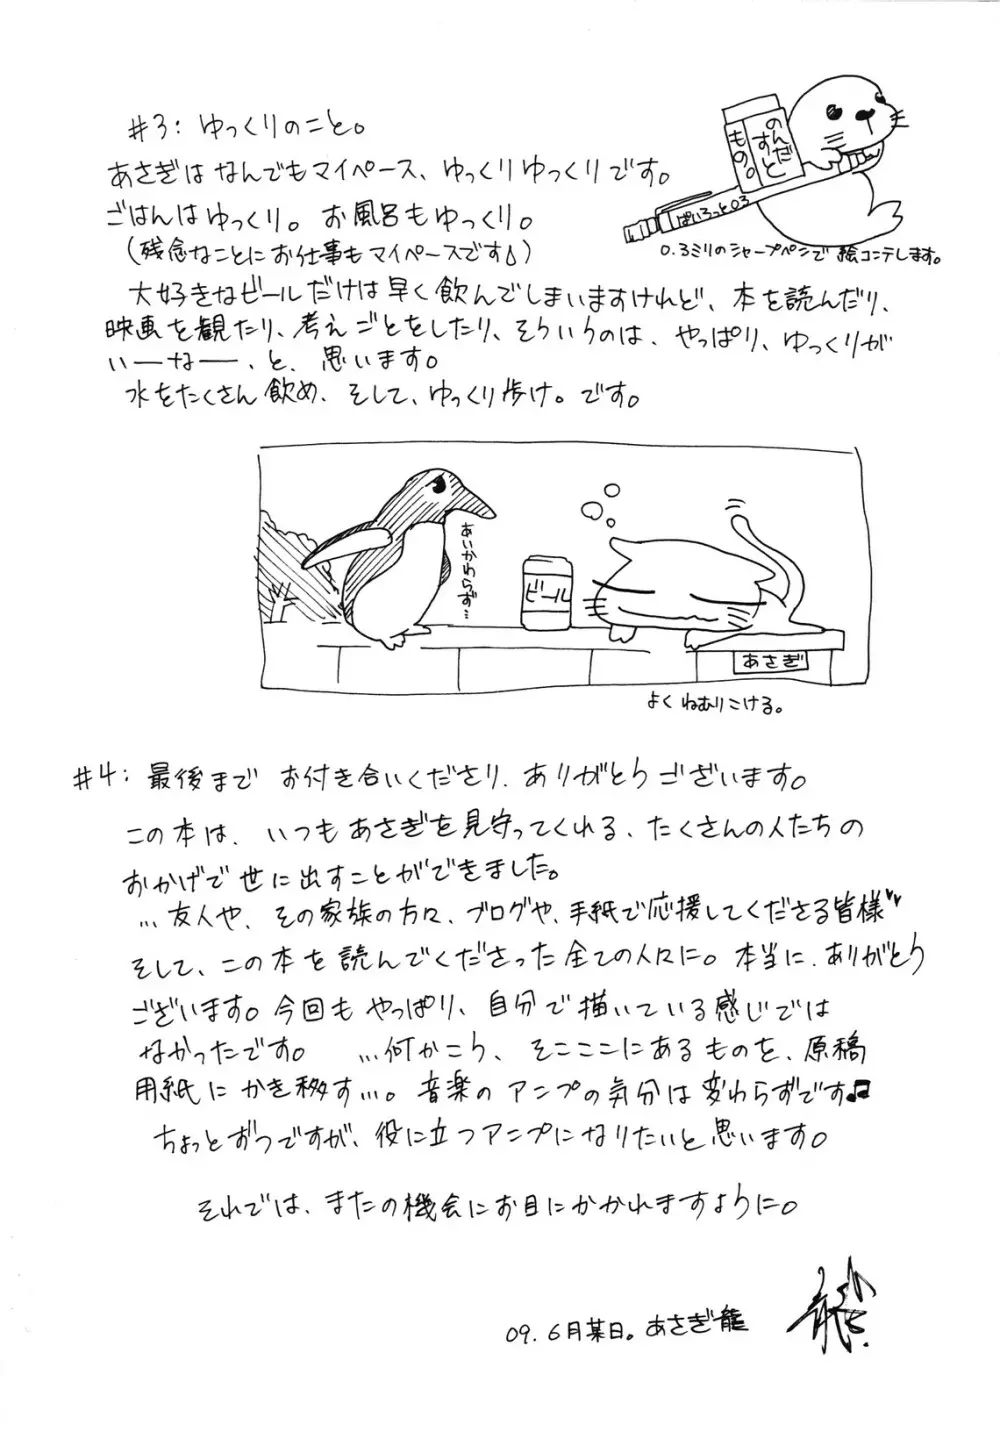 #3: ゆっくりのこと。
あさぎはなんでもマイペース、ゆっくりゆっくりです。
ごはんはゆっくり。お風呂もゆっくり。
(残念なことにお仕事もマイペースです)
大好きなビールだけは早く飲んでしまいますけれど、本を読んだり、
映画を観たり、考えごとをしたり、そういうのは、やっぱり、ゆっくりが
いーなー、と、思います。
水をたくさん飲め、そして、ゆっくり歩け。です。
のんだ
すと
もの。
ぱいろっと0.3
0.3ミリのシャープペンで絵コンテします。
あいかわらず…
ビール
あさぎ
よくねむりこける。
#4: 最後までお付き合いくださり、ありがとうございます。
この本は、いつもあさぎを見守ってくれる、たくさんの人たちの
おかげで世に出すことができました。
…友人や、その家族の方々、ブログや、手紙で応援してくださる皆様♥
そして、この本を読んでくださった全ての人々に。本当に、ありがとう
ございます。今回もやっぱり、自分で描いている感じでは
なかったです。 …何かこう、そこここにあるものを、原稿
用紙にかき移す…。音楽のアンプの気分は変わらずです♫
ちょっとずつですが、役に立つアンプになりたいと思います。
それでは、またの機会にお目にかかれますように。
09.6月某日。あさぎ龍